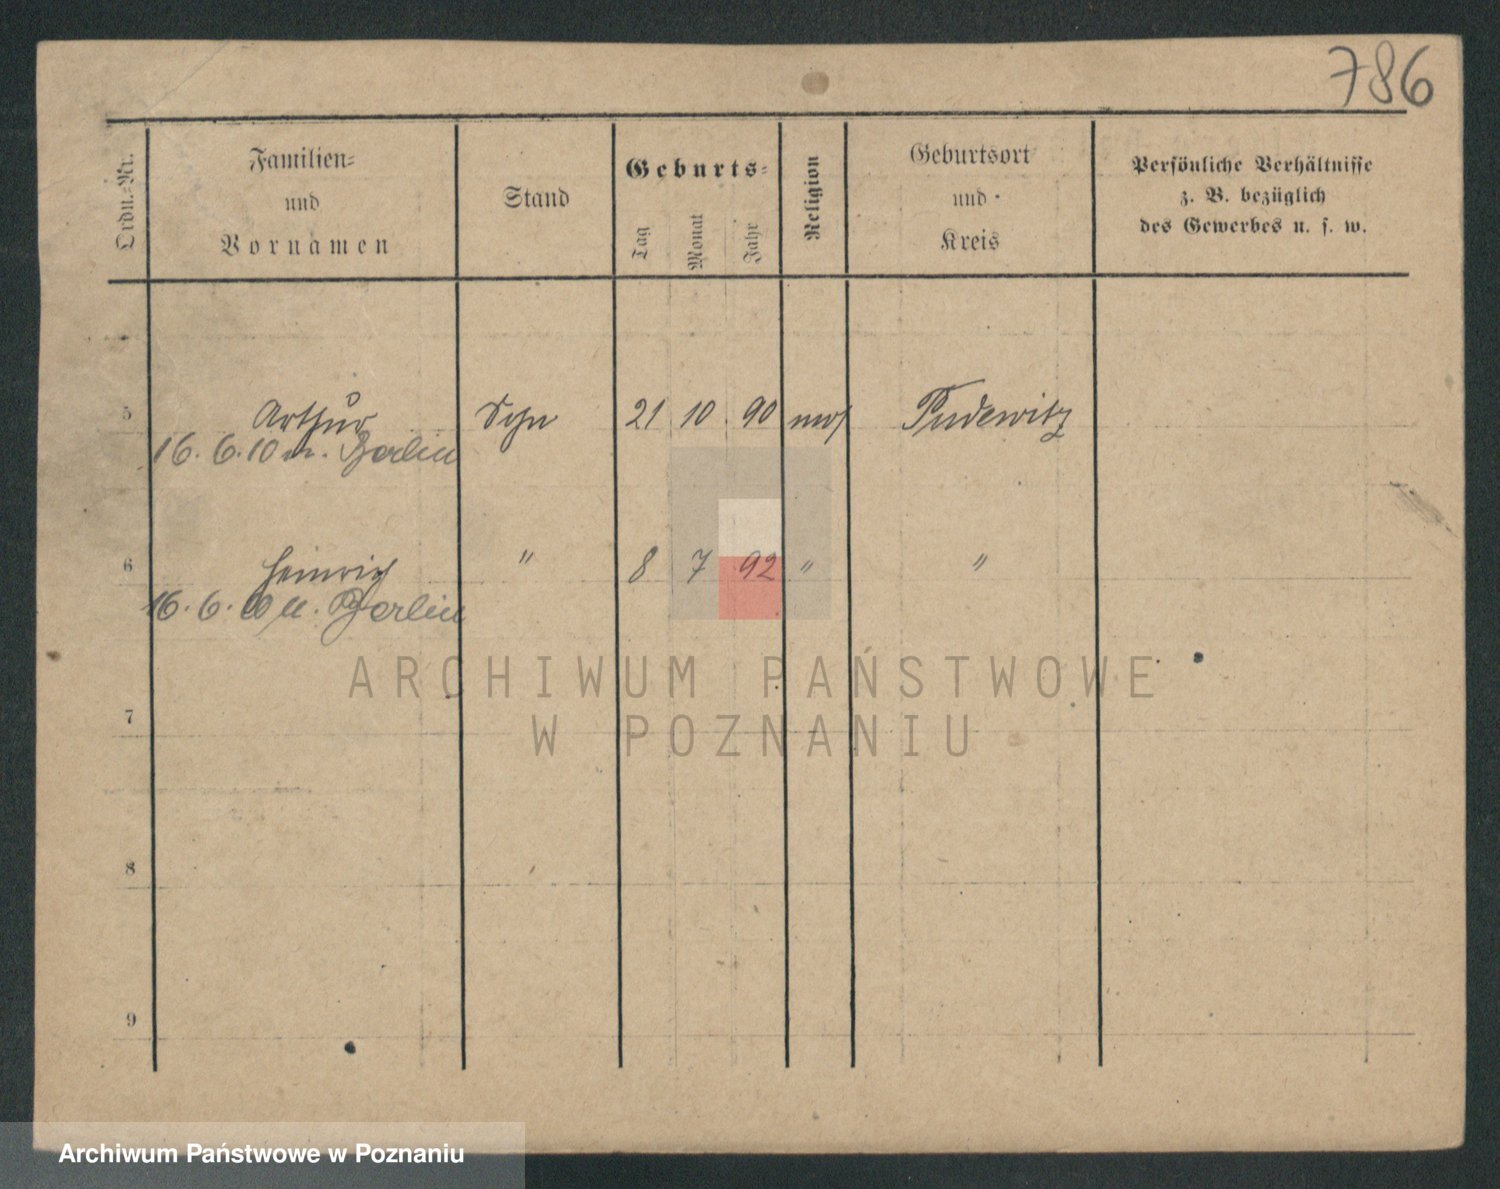 786
Ordn.-Nr.
Familien-
und
Vornamen
Stand
Geburts-
Tag
Monat
Jahr
Religion
Geburtsort
und
Kreis
Persönliche Verhältnisse
z. B. bezüglich
des Gewerbes u. s. w.
5 Arthur Sohn 21 10 90 mos Pudewitz
16. 6. 10 n. Berlin
6 Heinrich " 8 7 92 " "
16. 6. 10 n. Berlin
ARCHIWUM PAŃSTWOWE
7
W POZNANIU
8
9
Archiwum Państwowe w Poznaniu